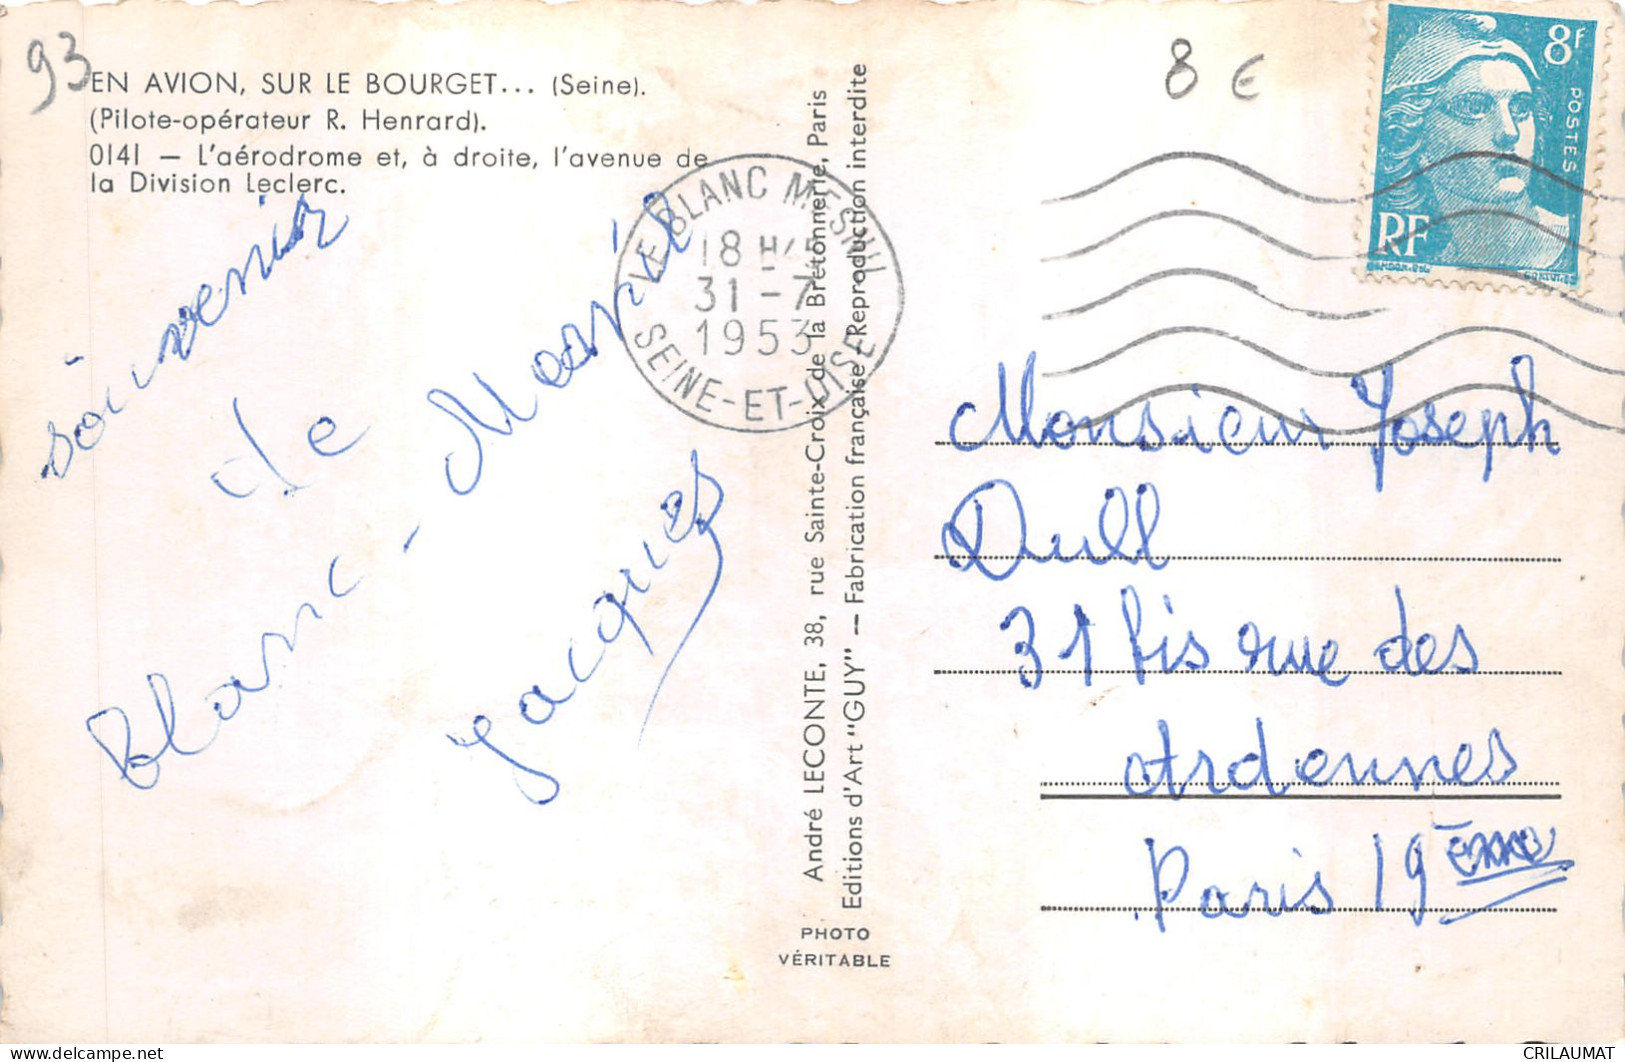 93
EN AVION, SUR LE BOURGET... (Seine).
(Pilote-opérateur R. Henrard).
0141 — L'aérodrome et, à droite, l'avenue de
la Division Leclerc.
souvenir
de
Blanc-Mesnil
Jacques
LE BLANC MESNIL
18 H 45
31 - 7
1953
SEINE-ET-OISE
André LECONTE, 38, rue Sainte-Croix de la Bretonnerie, Paris
Editions d'Art "GUY" — Fabrication française - Reproduction interdite
PHOTO
VÉRITABLE
8 €
8F
POSTES
RF
Monsieur Joseph
Dull
31 bis rue des
Ardennes
Paris 19ème
CRILAUMAT